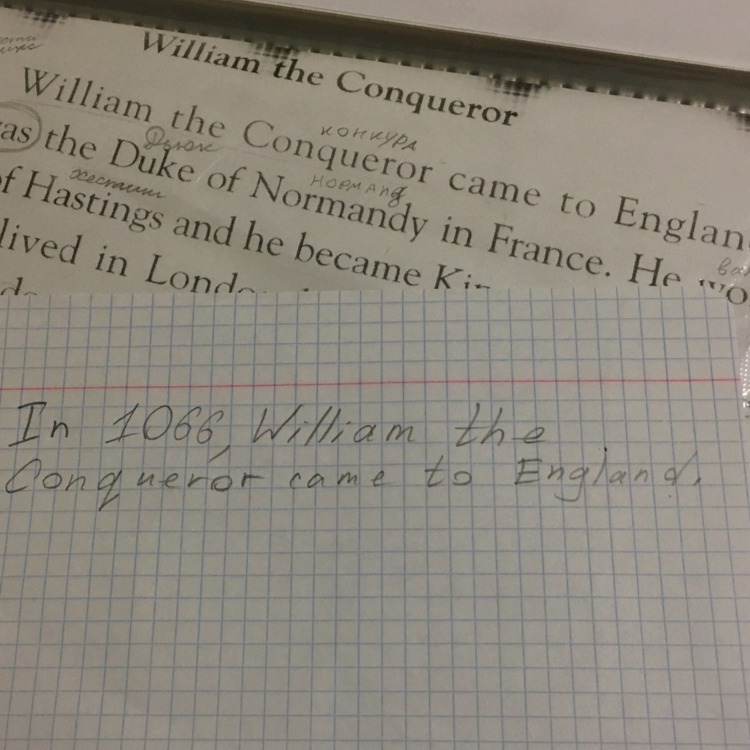 William the Conqueror
William the Conqueror came to
конкура
as the Duke of Normandy in France. He
Дьюк
норманд
of Hastings and he became
хестинг
lived in
In 1066, William the
Conqueror came to England.